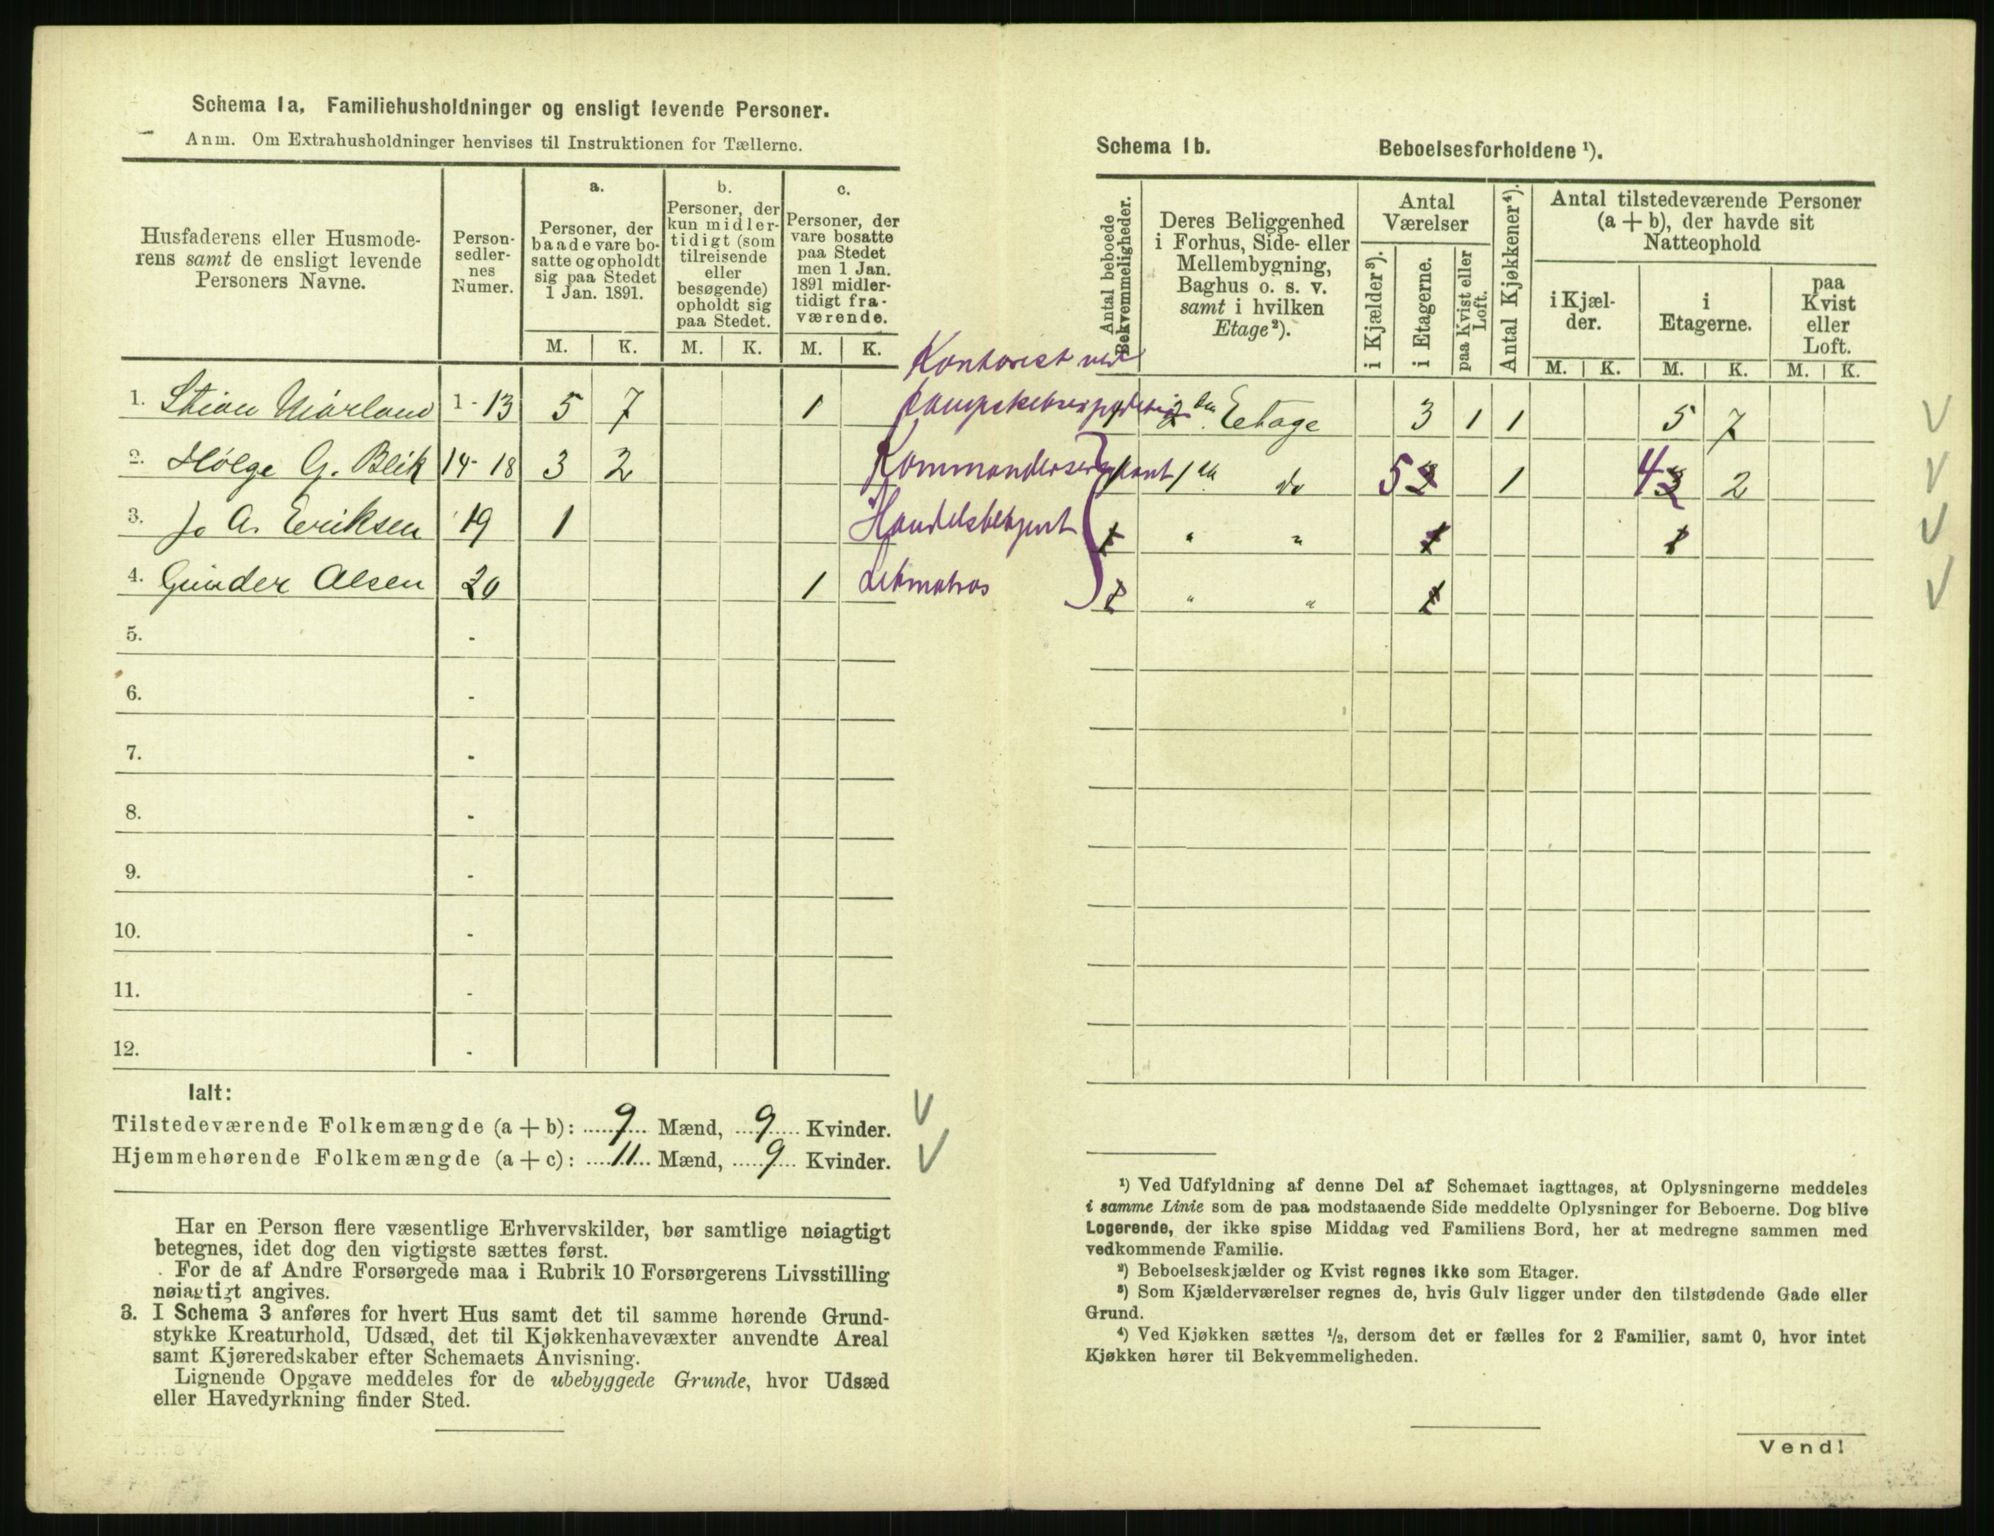 Schema 1a. Familiehusholdninger og ensligt levende Personer.
Anm. Om Extrahusholdninger henvises til Instruktionen for Tællerne.
Husfaderens eller Husmode-
rens samt de ensligt levende
Personers Navne.
Person-
sedler-
nes
Numer.
a.
Personer, der
baade vare bo-
satte og opholdt
sig paa Stedet
1 Jan. 1891.
b.
Personer, der
kun midler-
tidigt (som
tilreisende
eller
besøgende)
opholdt sig
paa Stedet.
c.
Personer, der
vare bosatte
paa Stedet
men 1 Jan.
1891 midler-
tidigt fra-
værende.
M. K. M. K. M. K.
1. Stian Mørland 1-13 5 7 1 Kontorist ved
2. Hølge G. Blik 14-18 3 2 Kommandersergeant
3. Jo A. Eriksen 19 1 Handelsbetjent
4. Gunder Olsen 20 1 Letmatros
5. -
6. -
7. -
8. -
9. -
10. -
11. -
12. -
Ialt:
Tilstedeværende Folkemængde (a + b): 9 Mænd, 9 Kvinder.
Hjemmehørende Folkemængde (a + c): 11 Mænd, 9 Kvinder.
Har en Person flere væsentlige Erhvervskilder, bør samtlige nøiagtigt
betegnes, idet dog den vigtigste sættes først.
For de af Andre Forsørgede maa i Rubrik 10 Forsørgerens Livsstilling
nøiagtigt angives.
3. I Schema 3 anføres for hvert Hus samt det til samme hørende Grund-
stykke Kreaturhold, Udsæd, det til Kjøkkenhavevæxter anvendte Areal
samt Kjøreredskaber efter Schemaets Anvisning.
Lignende Opgave meddeles for de ubebyggede Grunde, hvor Udsæd
eller Havedyrkning finder Sted.
Schema 1b. Beboelsesforholdene ¹).
Antal beboede
Bekvemmeligheder.
Deres Beliggenhed
i Forhus, Side- eller
Mellembygning,
Baghus o. s. v.
samt i hvilken
Etage²).
Antal
Værelser
i Kjælder³).
i Etagerne.
paa Kvist eller
Loft.
Antal Kjøkkener⁴).
Antal tilstedeværende Personer
(a + b), der havde sit
Natteophold
i Kjæl-
der.
i
Etagerne.
paa
Kvist
eller
Loft.
M. K. M. K. M. K.
1 2den Etage 3 1 1 5 7
1 1ste do 5 2 1 4 3 2
1 " " 1 1
1 " " 1
¹) Ved Udfyldning af denne Del af Schemaet iagttages, at Oplysningerne meddeles
i samme Linie som de paa modstaaende Side meddelte Oplysninger for Beboerne. Dog blive
Logerende, der ikke spise Middag ved Familiens Bord, her at medregne sammen med
vedkommende Familie.
²) Beboelseskjælder og Kvist regnes ikke som Etager.
³) Som Kjælderværelser regnes de, hvis Gulv ligger under den tilstødende Gade eller
Grund.
⁴) Ved Kjøkken sættes ½, dersom det er fælles for 2 Familier, samt 0, hvor intet
Kjøkken hører til Bekvemmeligheden.
Vend!